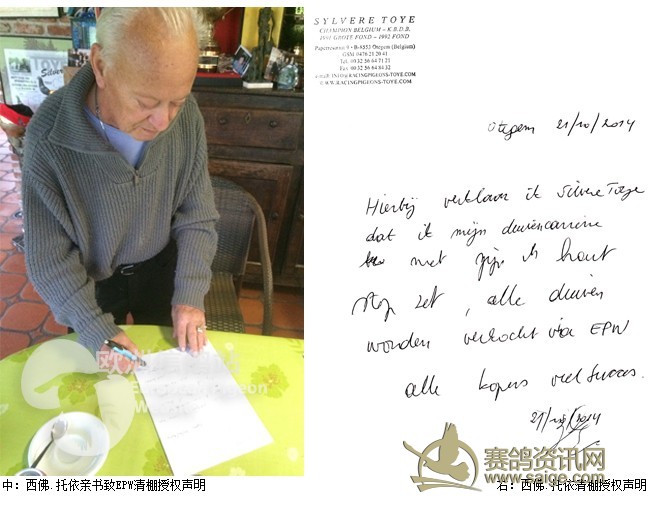 SYLVERE TOYE
CHAMPION BELGIUM - K.B.D.B.
1991 GROTE FOND - 1992 FOND
B-8553 Otegem (Belgium)
GSM 0476 21 20 41
Tel. 00 32 56 64 71 21
Fax 00 32 56 64 84 32
e-mail: INFO@RACING-PIGEONS-TOYE.COM
WWW.RACINGPIGEONS-TOYE.COM
Otegem 21/10/2014
Hierbij verklaar ik Silvere Toye
dat ik mijn duivencarriere
met pijn in 't hart
stop zet, alle duiven
worden verkocht via EPW
alle kopers veel succes.
21/10/2014
赛鸽资讯网
www.saige.com
中：西佛.托依亲书致EPW清棚授权声明
右：西佛.托依清棚授权声明